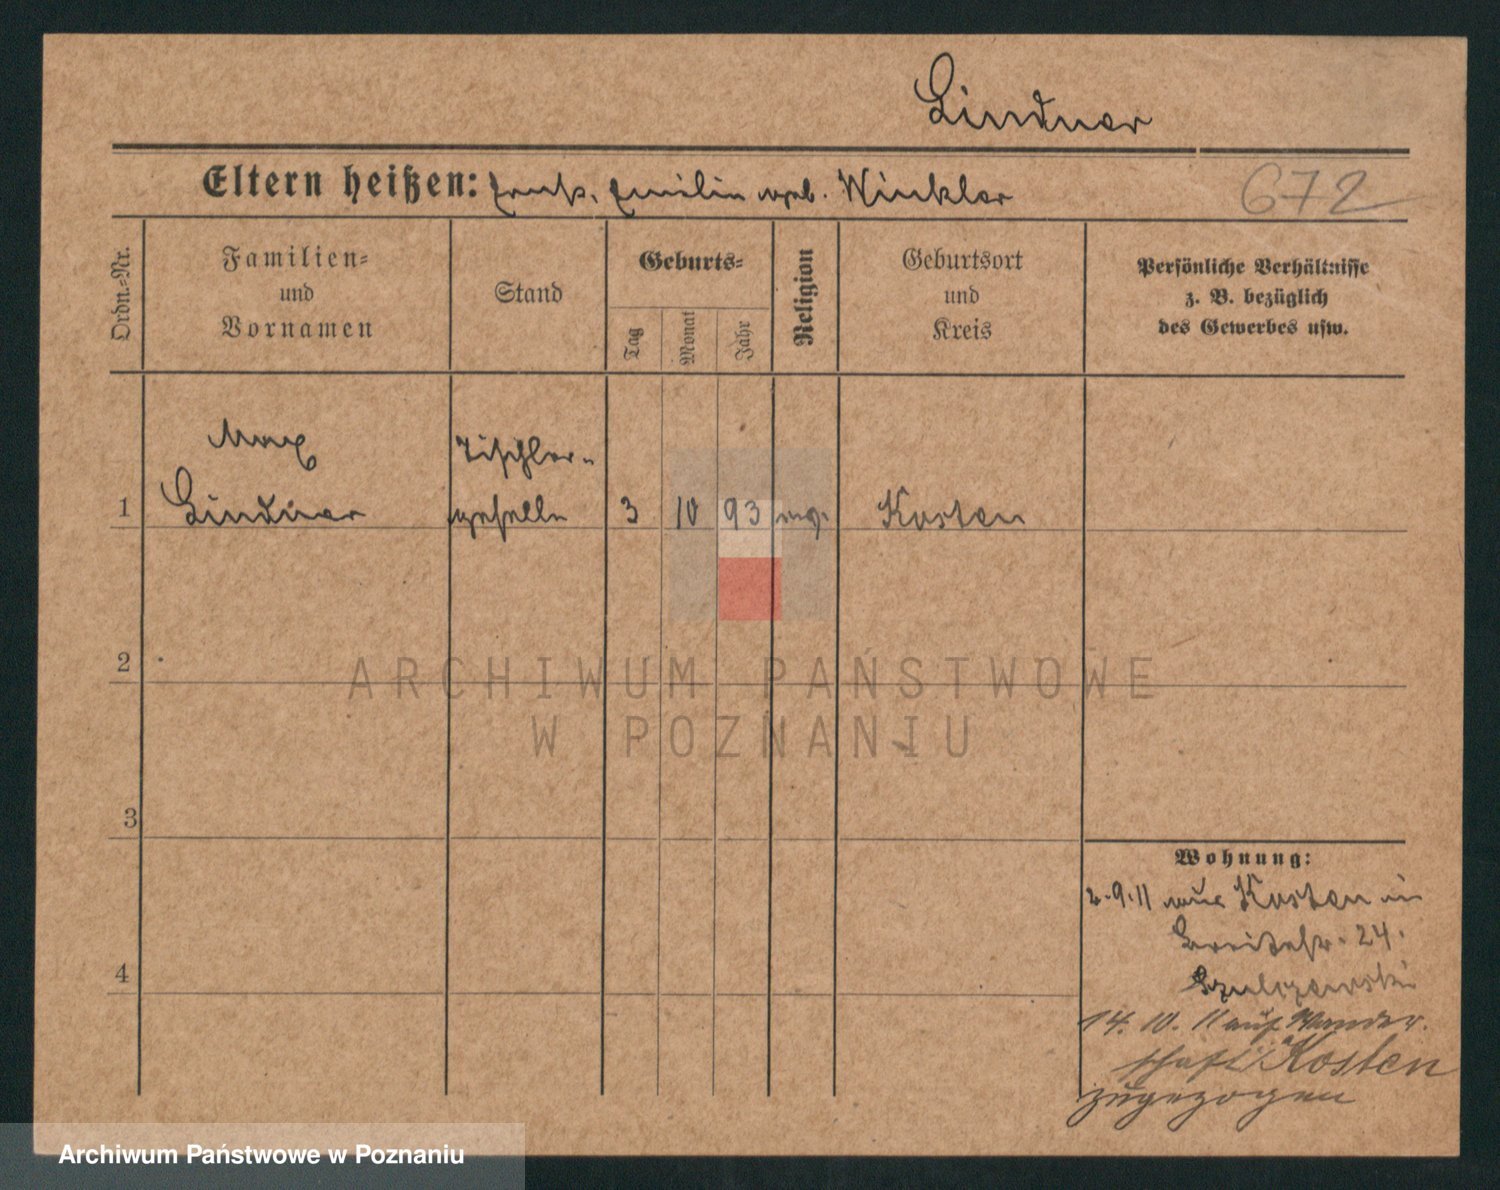 Lindner
Eltern heißen: Ernst, Emilie geb. Winkler
672
Ordn.-Nr.
Familien-
und
Vornamen
Stand
Geburts-
Tag
Monat
Jahr
Religion
Geburtsort
und
Kreis
Persönliche Verhältnisse
z. B. bezüglich
des Gewerbes usw.
Max
Tischler-
1 Lindner geselle 3 10 93 evg. Kosten
2
ARCHIWUM PAŃSTWOWE
W POZNANIU
3
Wohnung:
2.9.11 aus Kosten in
Breitestr. 24.
Szulczewski
4
14. 10. 11 auf Wander.
schaft Kosten
zugezogen
Archiwum Państwowe w Poznaniu